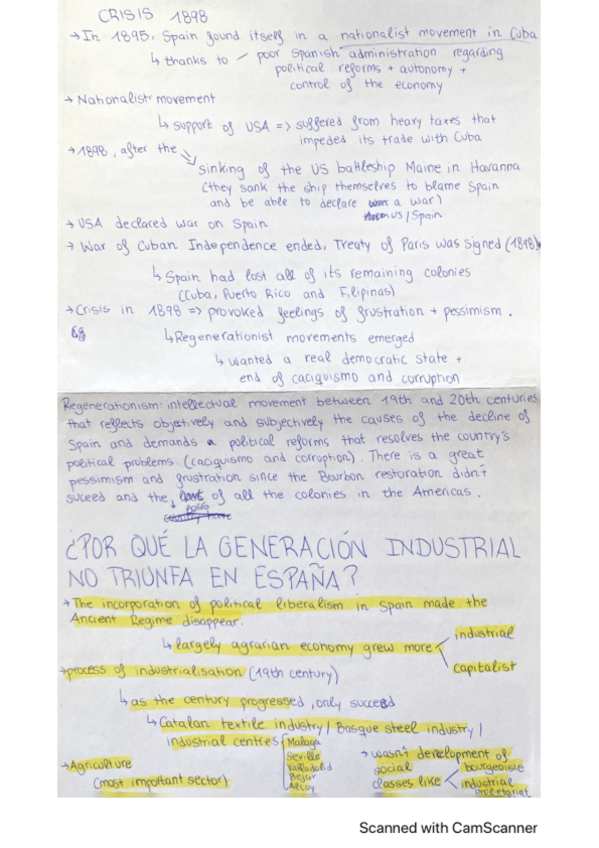 CRISIS 1898
→ In 1895, Spain found itself in a nationalist movement in Cuba
↳ thanks to – poor Spanish administration regarding
political reforms + autonomy +
control of the economy
→ Nationalist movement
↳ support of USA => suffered from heavy taxes that
impeded its trade with Cuba
→ 1898, after the
sinking of the US battleship Maine in Havanna
(they sank the ship themselves to blame Spain
and be able to declare a war)
US / Spain
→ USA declared war on Spain
→ War of Cuban Independence ended, Treaty of Paris was signed (1898)
↳ Spain had lost all of its remaining colonies
(Cuba, Puerto Rico and Filipinas)
→ Crisis in 1898 => provoked feelings of frustration + pessimism.
↳ Regenerationist movements emerged
↳ wanted a real democratic state +
end of caciquismo and corruption
Regenerationism: intellectual movement between 19th and 20th centuries
that reflects objectively and subjectively the causes of the decline of
Spain and demands a political reforms that resolves the country's
political problems (caciquismo and corruption). There is a great
pessimism and frustration since the Bourbon restoration didn't
suceed and the of all the colonies in the Americas.
loss
¿POR QUÉ LA GENERACIÓN INDUSTRIAL
NO TRIUNFA EN ESPAÑA?
→ The incorporation of political liberalism in Spain made the
Ancient Regime disappear.
↳ largely agrarian economy grew more < industrial
capitalist
→ process of industrialisation (19th century)
↳ as the century progressed, only succeed
↳ Catalan textile industry / Basque steel industry /
industrial centres { Malaga
Seville
Valladolid
Bejar
Alcoy
→ Agriculture
(most important sector)
→ wasn't development of
social
classes like < bourgeoisie
industrial
proletariat
Scanned with CamScanner